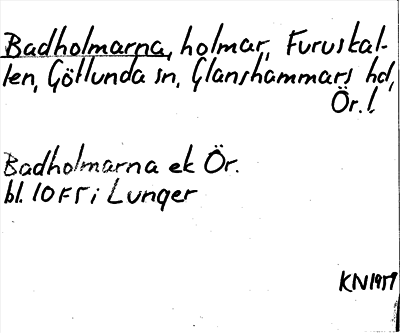 Badholmarna, holmar, Furuskal-
len, Götlunda sn, Glanshammars hd,
Ör. l.
Badholmarna ek Ör.
bl. 10 F5 i Lunger
KN 1959